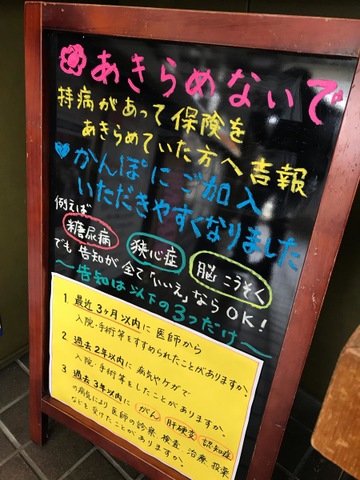 あきらめないで
持病があって保険を
あきらめていた方へ吉報
かんぽにご加入
いただきやすくなりました
例えば
糖尿病 狭心症 脳こうそく
でも告知が全て「いいえ」ならOK!
〜告知は以下の3つだけ〜
1 最近3ヶ月以内に医師から
入院・手術等をすすめられたことがありますか。
2 過去2年以内に病気やケガで
入院・手術等をしたことがありますか。
3 過去3年以内に がん 肝硬変 認知症
の病気により医師の診察、検査、治療、投薬
などを受けたことがありますか。